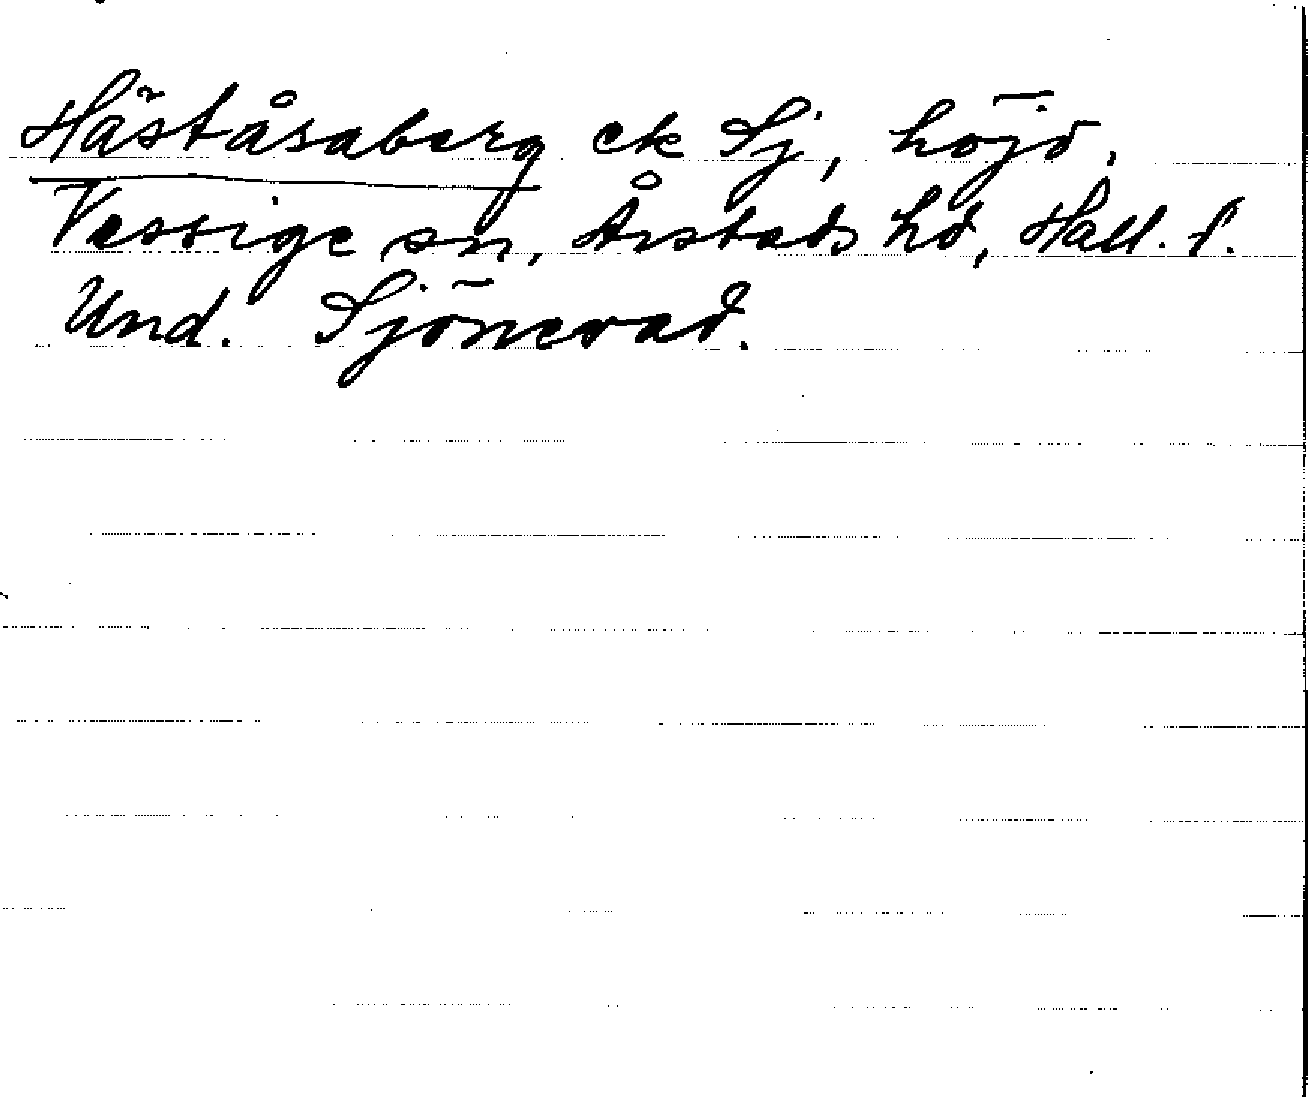 Häståsaberg ek Sj, höjd.
Vessige sn, Årstads hd, Hall. l.
Und. Sjönevad.